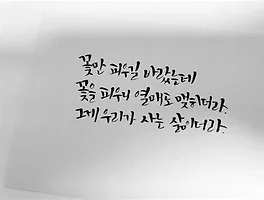 꽃만 피우길 바랐는데
꽃을 피우니 열매도 맺히더라.
그게 우리가 사는 삶이더라.